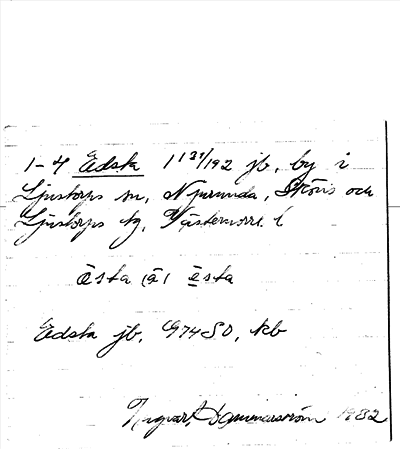 1-4 Edsta 1 131/192 jb, by i
Ljustorps sn, Njurunda, Sköns och
Ljustorps tg, Västernorrl. l
östa (ä) ésta
Edsta jb, G74SO, kb
Ingvar Hammarström 1982